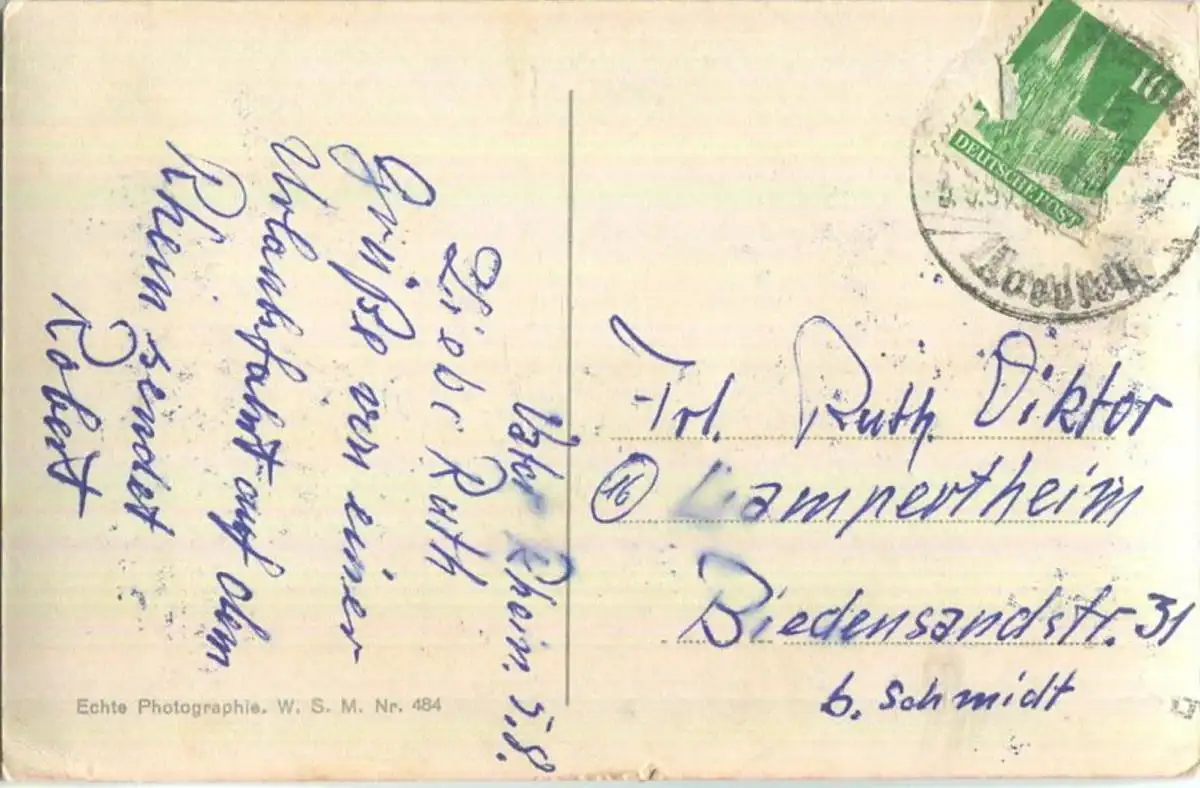 Rhein, 5.8.
Liebe Ruth
Grüße von einer
Urlaubsfahrt auf dem
Rhein sendet
Robert
Echte Photographie. W. S. M. Nr. 484
10
DEUTSCHE POST
Frl. Ruth Diktor
16 Lampertheim
Biedensandstr. 31
b. Schmidt